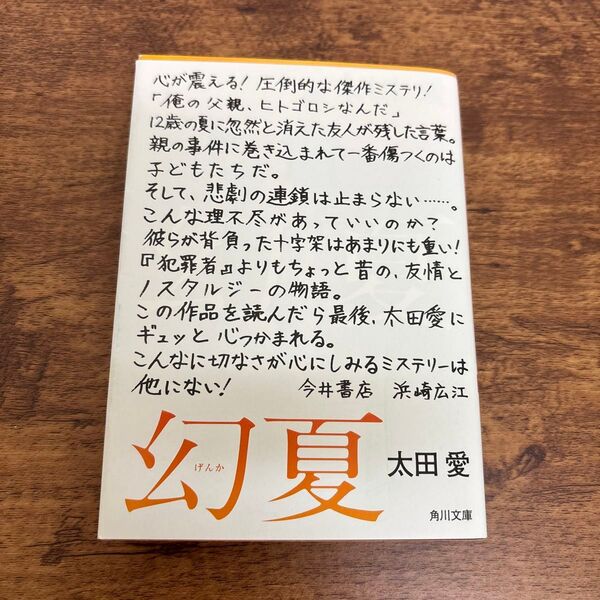 心が震える! 圧倒的な傑作ミステリ!
「俺の父親、ヒトゴロシなんだ」
12歳の夏に忽然と消えた友人が残した言葉。
親の事件に巻き込まれて一番傷つくのは
子どもたちだ。
そして、悲劇の連鎖は止まらない……。
こんな理不尽があっていいのか?
彼らが背負った十字架はあまりにも重い!
『犯罪者』よりもちょっと昔の、友情と
ノスタルジーの物語。
この作品を読んだら最後、太田愛に
ギュッと心つかまれる。
こんなに切なさが心にしみるミステリーは
他にない! 今井書店 浜崎広江
幻夏
げんか
太田 愛
角川文庫